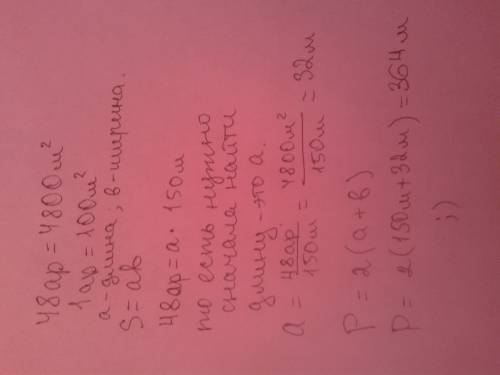 48ар = 4800м²
1ар = 100м²
а-длина; в-ширина.
S = ав
48ар = а · 150м
то есть нужно
сначала найти
длину - это а.
а = 48ар/150м = 4800м²/150м = 32м
P = 2(а+в)
P = 2(150м+32м) = 364м
;)